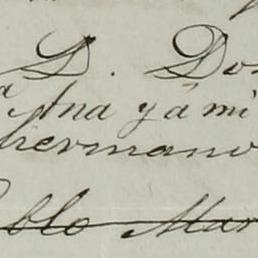 D. Do
Ana y á mi
hermano
blo Mar